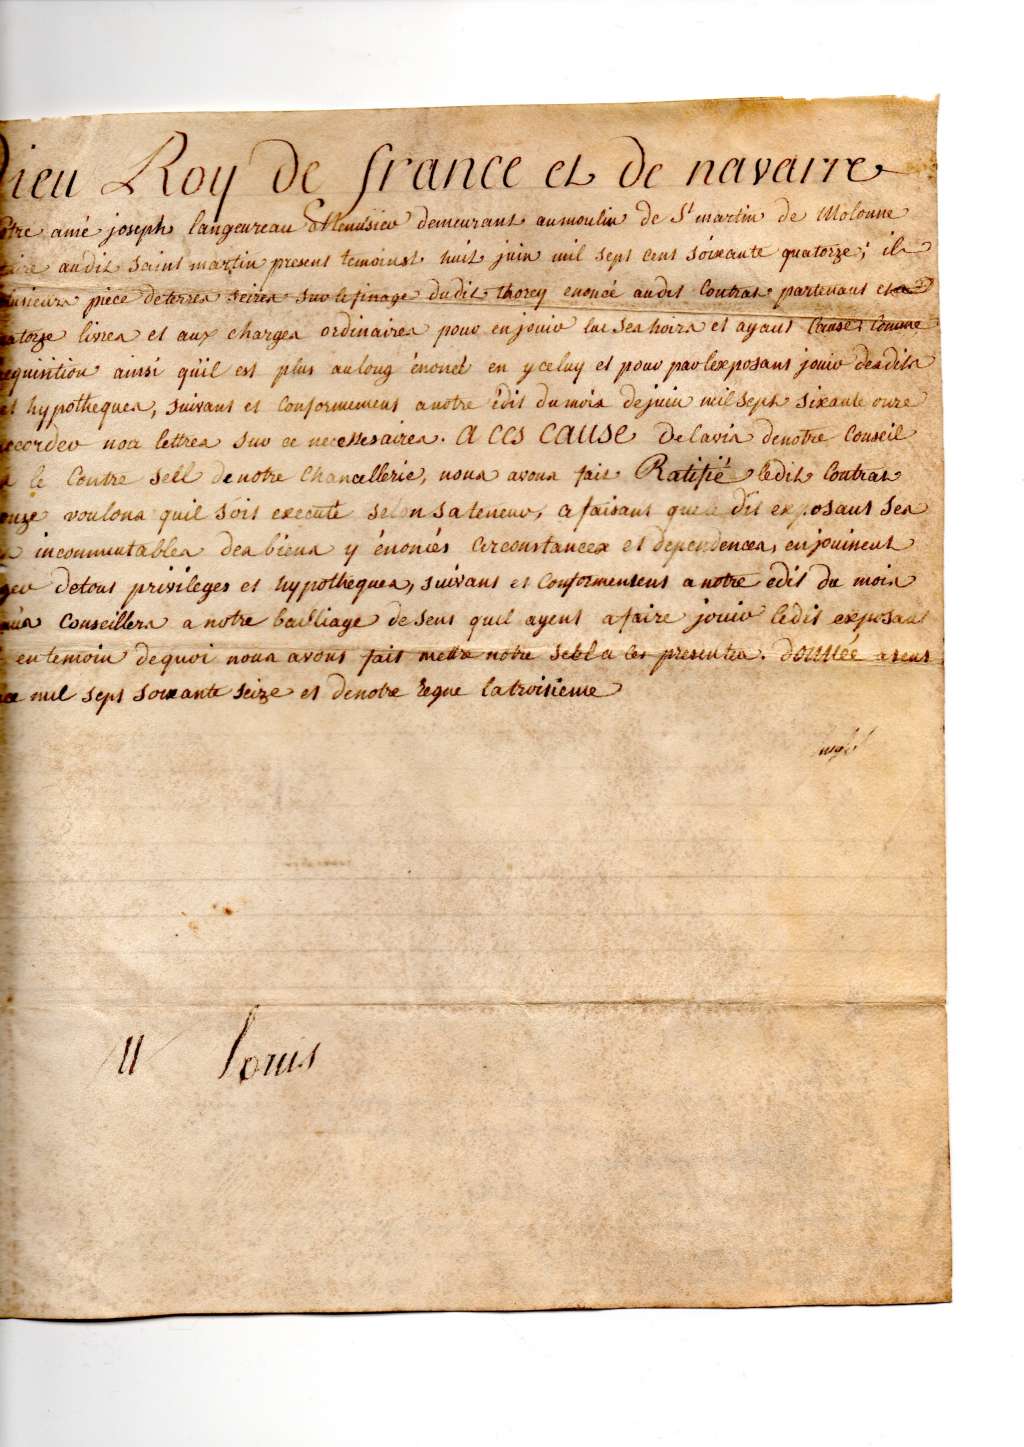 Dieu Roy de france et de navarre
amé joseph langeureau Menusier demeurant aumoulin de St martin de Molonne
audit saint martin present temoins huit juin mil sept cent soixante quatorze; il
piece deterres seizes sur lefinage dudit thorey enoncé audit Contrat partenant et
livres et aux charges ordinaires pour enjouir lui seshoirs et ayant Cause, Comme
ainsi qu'il est plus aulong énoncé en yceluy et pour parlexposant jouir desdits
hypotheques, suivant et Conformement anotre édit dumois dejuin milsept sixante onze
nos lettres sur ce necessesaires. A CES CAUSE Delavis denotre Conseil
le Contre sell denotre Chancellerie, nous avons fait Ratifié ledit Contrat
voulons quil soit execute selon sateneur, cefaisant quele dit exposant ses
incommutables des biens y énoncés Circonstances et dependences, enjouissent
detous privileges et hypotheques, suivant et Conformement anotre edit du mois
Conseillers anotre bailliage desens quil ayent afaire jouir ledit exposant
entemoin dequoi nous avons fait mettre notre sell a ces presentes. donnée asens
mil sept soixante seize et denotre regne latroisieme
louis